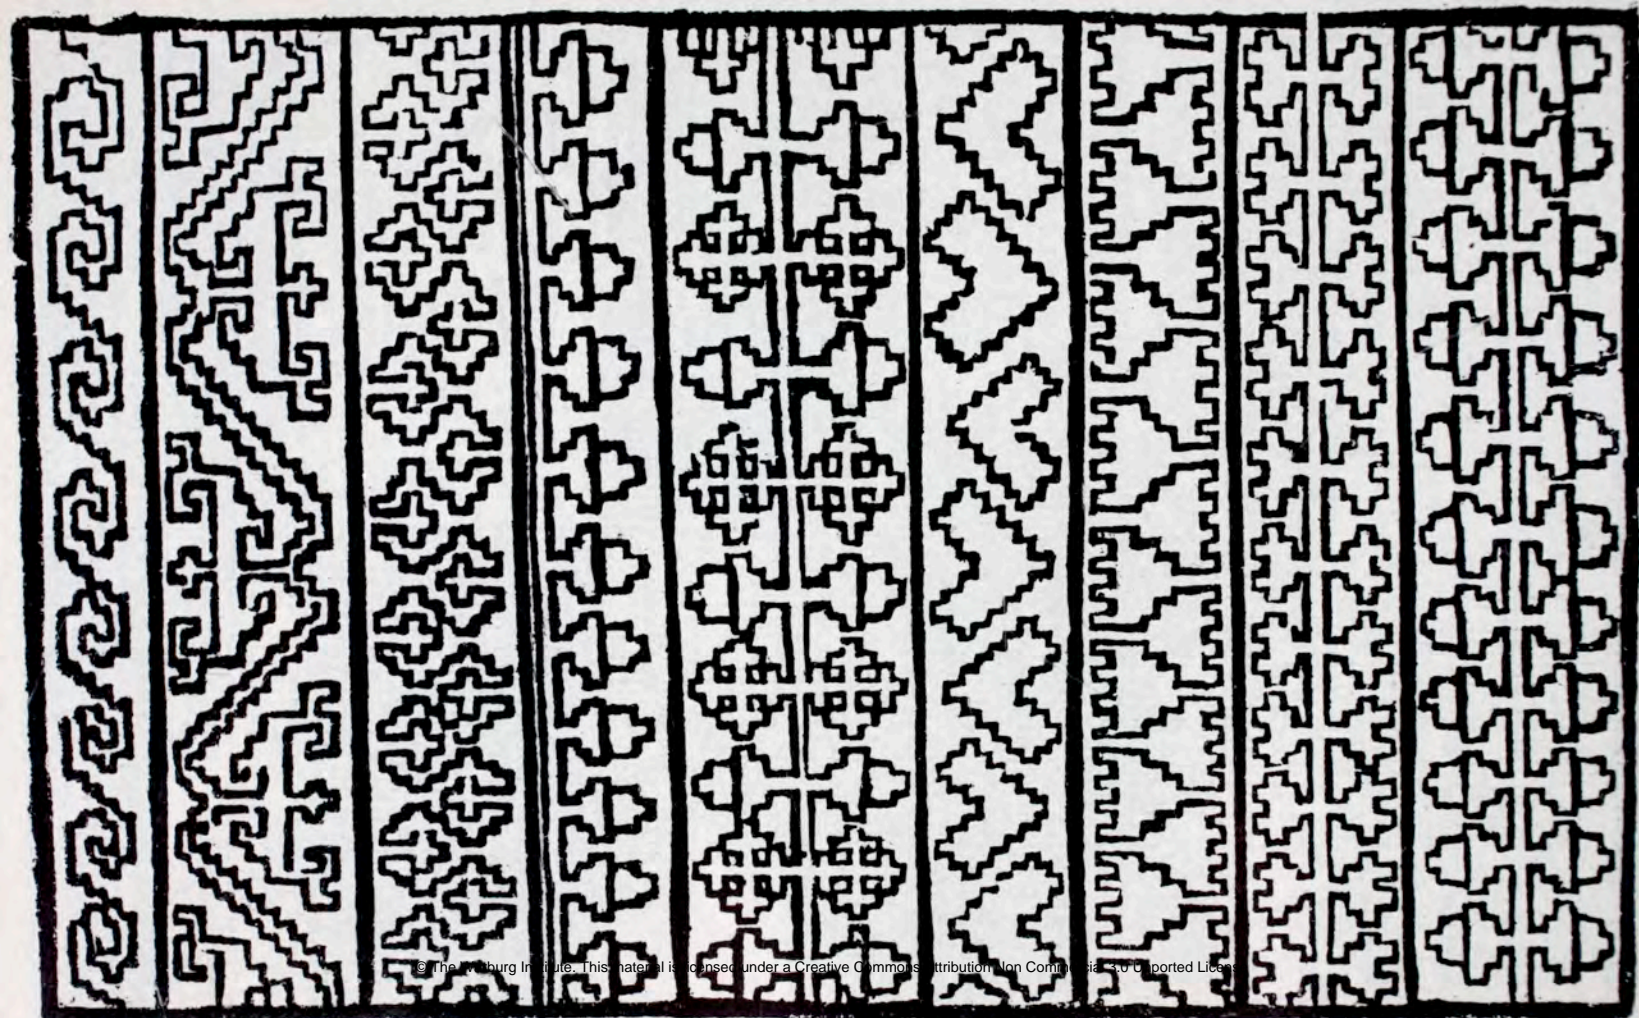 © The Warburg Institute. This material is licensed under a Creative Commons Attribution Non Commercial 3.0 Unported License